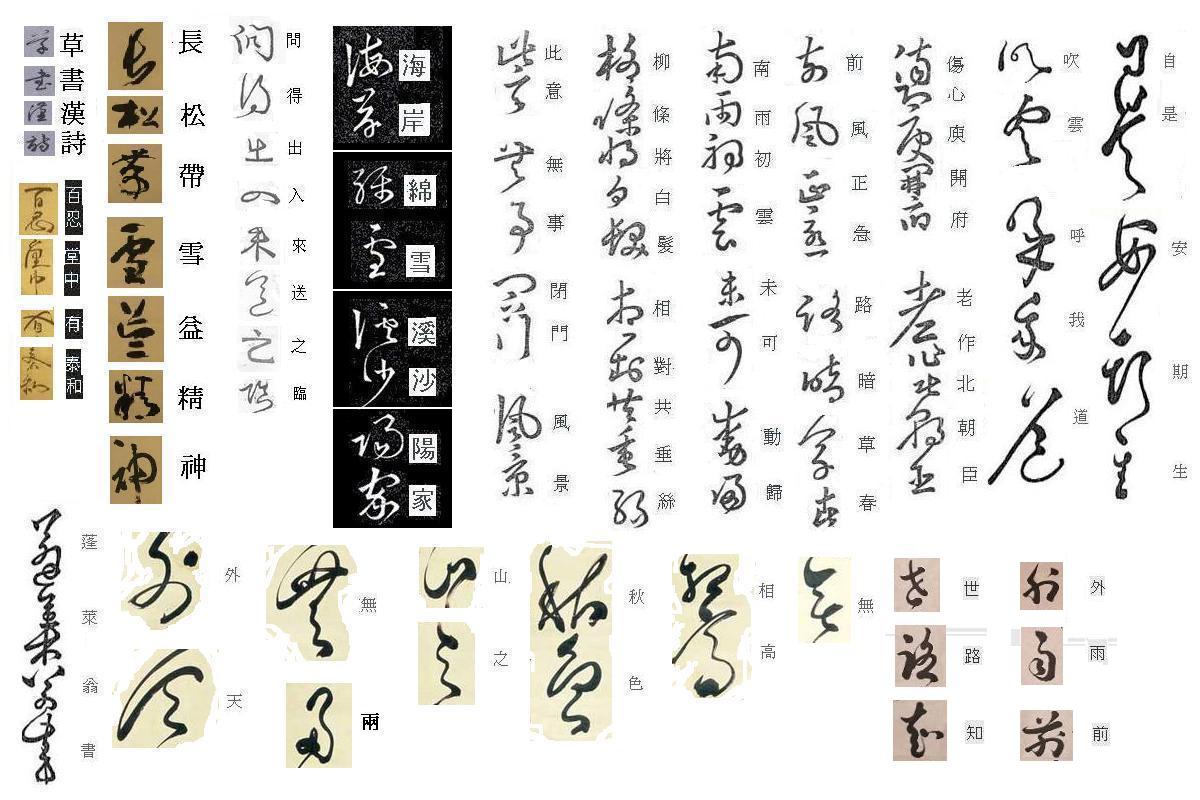 草書漢詩
百忍堂中有泰和
長松帶雪益精神
問得出入來送之臨
海岸
綿雪
溪沙
陽家
此意無事閉門風景
柳條將白髮相對共垂絲
南雨初雲未可動歸
前風正急路暗草春
傷心庾開府老作北朝臣
吹雲呼我道
自是安期生
蓬萊翁書
外天
無兩
山之
秋色
相高
無
世路知
外雨前